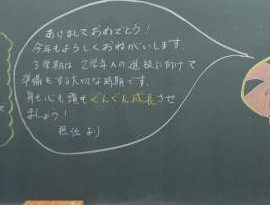 あけましておめでとう！
今年もよろしくおねがいします
3学期は2学年への進級に向けて
準備をする大切な時期です。
身も心も頭もぐんぐん成長させ
ましょう！
担任より